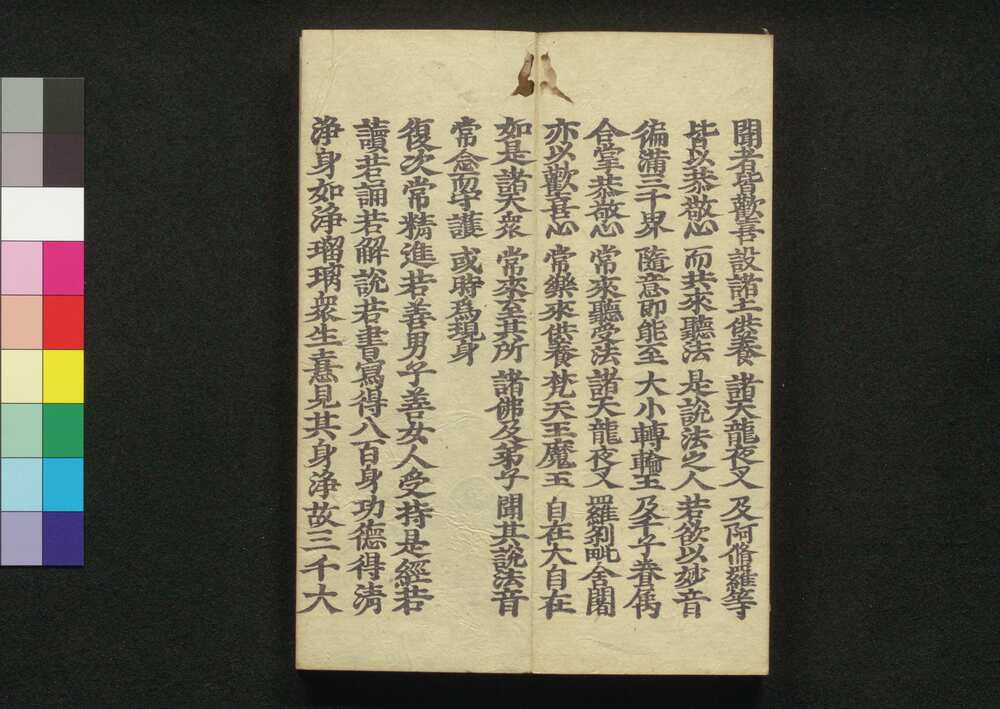 聞者皆歡喜 設諸上供養 諸天龍夜叉 及阿脩羅等
皆以恭敬心 而共來聽法 是說法之人 若欲以妙音
徧滿三千界 隨意即能至 大小轉輪王 及千子眷属
合掌恭敬心 常來聽受法 諸天龍夜叉 羅刹毗舍闍
亦以歡喜心 常樂來供養 梵天王魔王 自在大自在
如是諸天衆 常來至其所 諸佛及弟子 聞其說法音
常念而守護 或時爲現身
復次常精進若善男子善女人受持是經若
讀若誦若解說若書寫得八百身功德得清
浄身如浄瑠璃衆生憙見其身浄故三千大